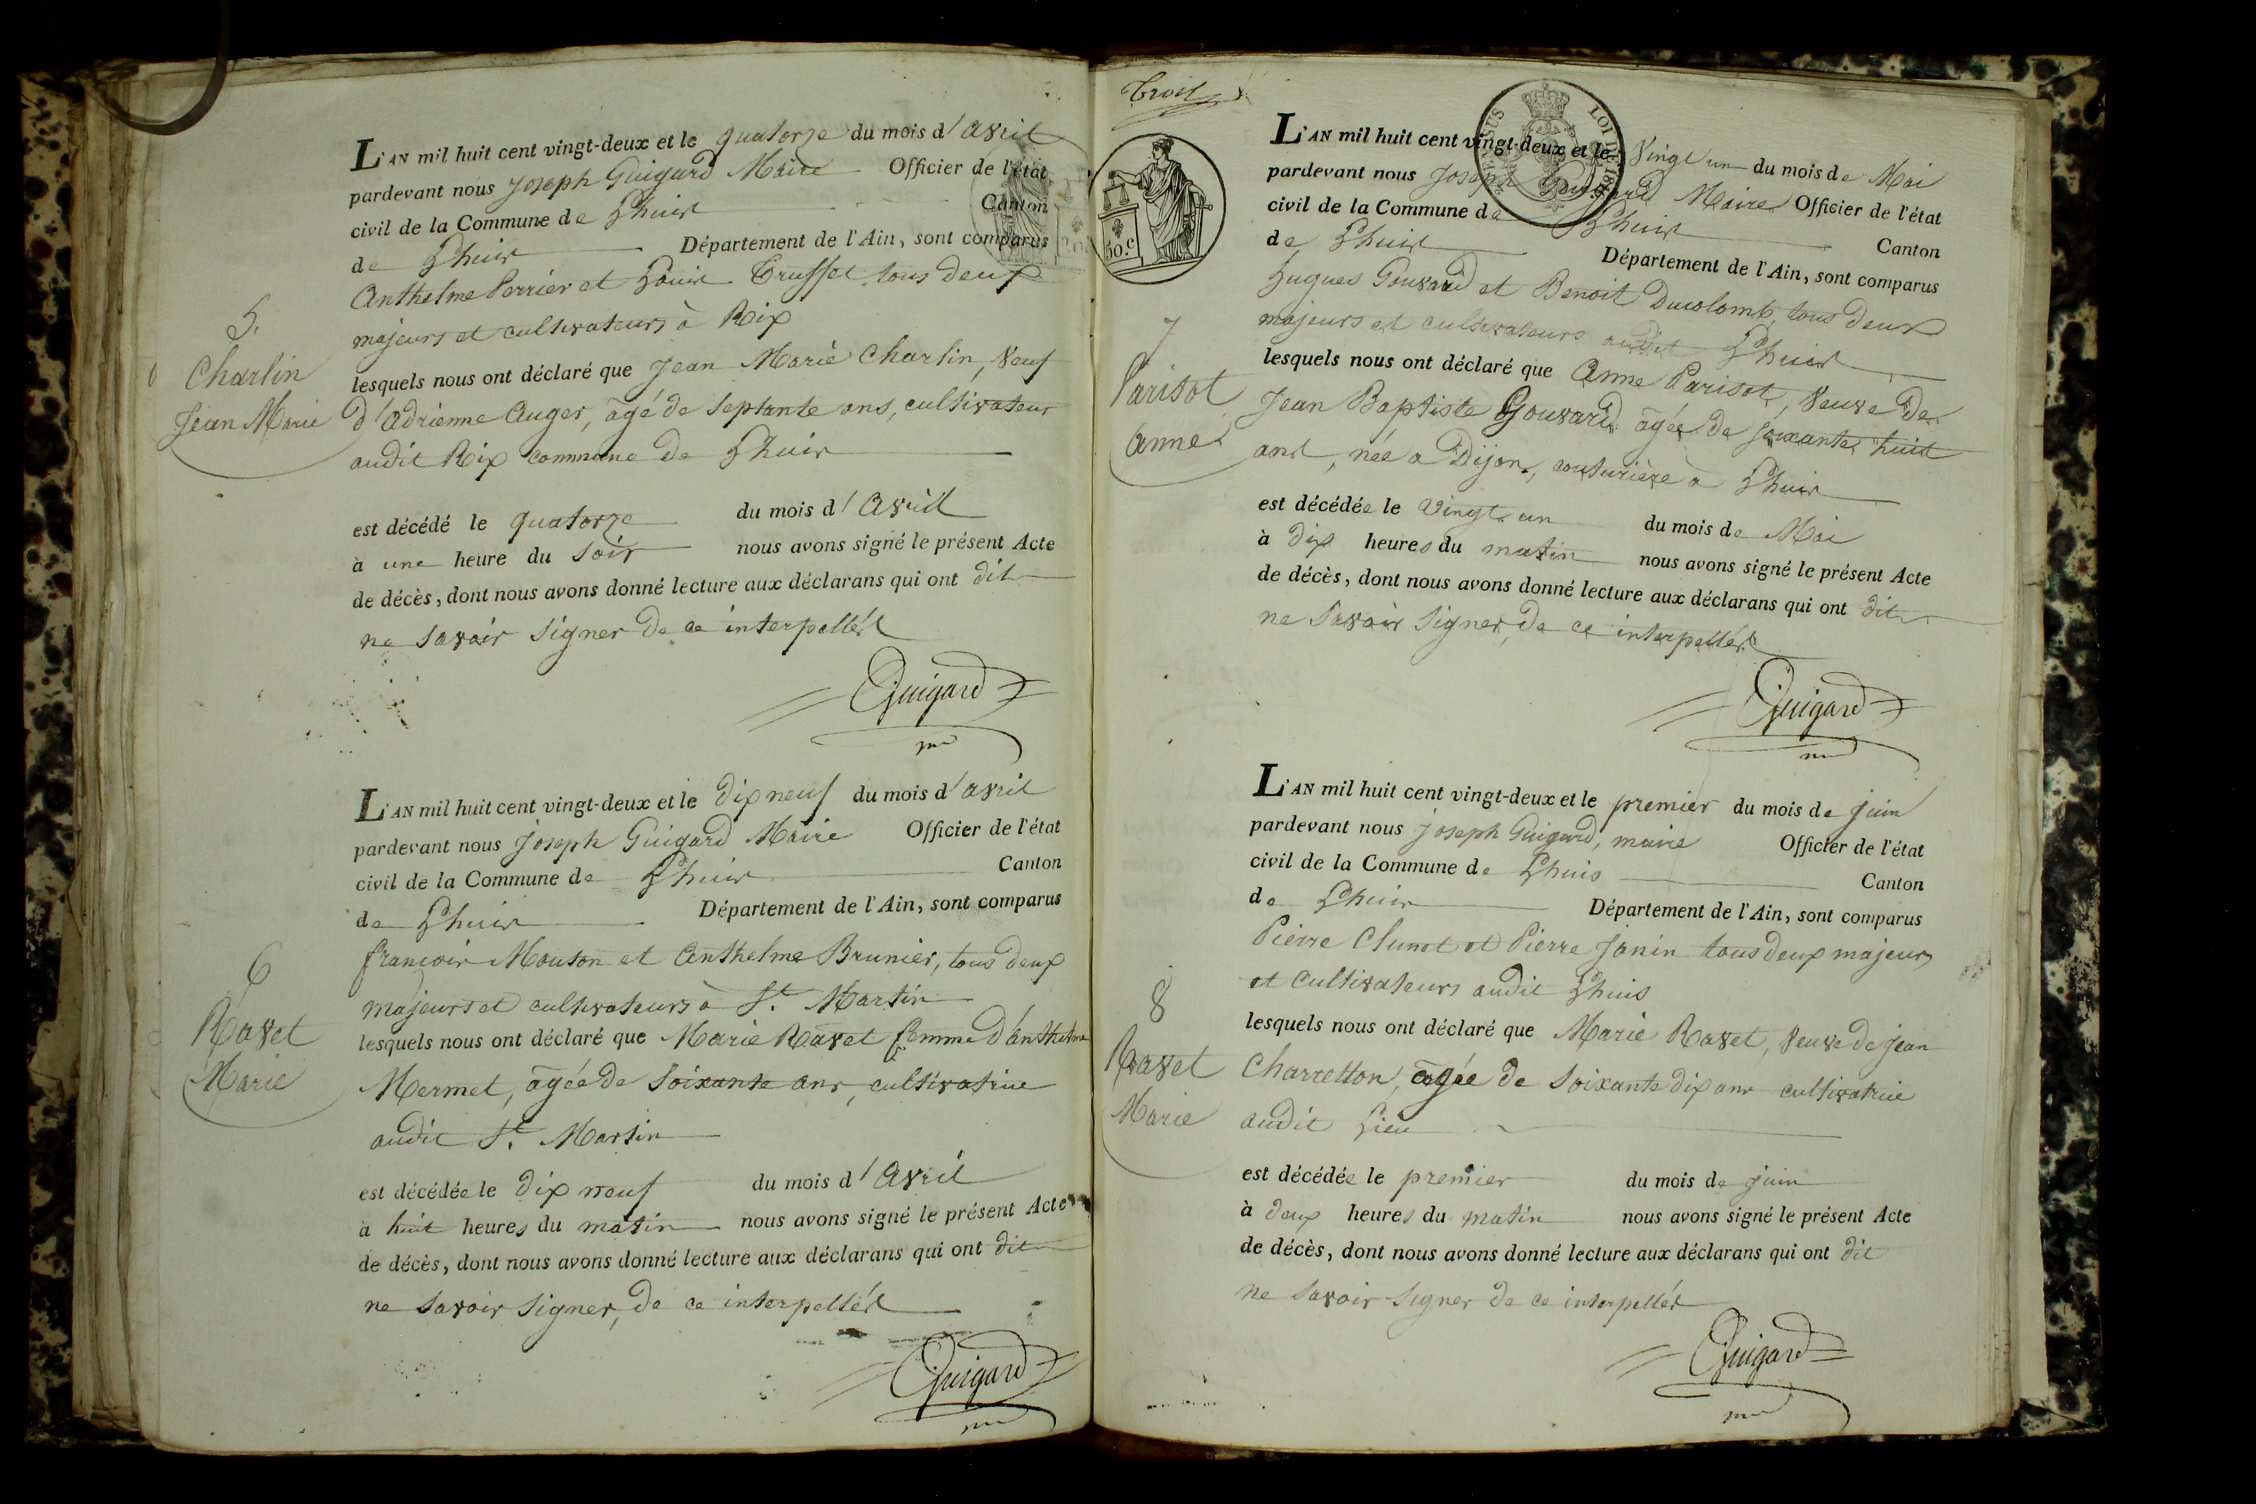 L'AN mil huit cent vingt-deux et le quatorze du mois d'avril
pardevant nous Joseph Guigard Maire Officier de l'état
civil de la Commune de Lhuis Canton
de Lhuis Département de l'Ain, sont comparus
Anthelme Perrier et Louis Truffet tous deux
majeurs et cultivateurs à Rix
5.
Charlin
Jean Marie
lesquels nous ont déclaré que Jean Marie Charlin, veuf
d'Adrienne Auger, âgé de septante ans, cultivateur
audit Rix commune de Lhuis
est décédé le quatorze du mois d'Avril
à une heure du soir nous avons signé le présent Acte
de décès, dont nous avons donné lecture aux déclarans qui ont dit
ne savoir signer de ce interpellés
Guigard
L'AN mil huit cent vingt-deux et le dix neuf du mois d'avril
pardevant nous Joseph Guigard Maire Officier de l'état
civil de la Commune de Lhuis Canton
de Lhuis Département de l'Ain, sont comparus
francois Mouton et Anthelme Brunier, tous deux
majeurs et cultivateurs à St. Martin
6
Ravet
Marie
lesquels nous ont déclaré que Marie Ravet femme d'Anthelme
Mermet, âgée de soixante ans, cultivatrice
audit St. Martin
est décédée le dix neuf du mois d'Avril
à huit heures du matin nous avons signé le présent Acte
de décès, dont nous avons donné lecture aux déclarans qui ont dit
ne savoir signer, de ce interpellés
Guigard
trois
LOI DE 1816
50.c
L'AN mil huit cent vingt-deux et le vingt un du mois de Mai
pardevant nous Joseph Guigard Maire Officier de l'état
civil de la Commune de Lhuis Canton
de Lhuis Département de l'Ain, sont comparus
hugues Gouvard et Benoit Ducolomb, tous deux
majeurs et cultivateurs audit Lhuis
7
Parisot
Anne
lesquels nous ont déclaré que Anne Parisot, veuve de
Jean Baptiste Gouvard âgée de soixante huit
ans, née a Dijon, couturière à Lhuis
est décédée le vingt un du mois de Mai
à dix heures du matin nous avons signé le présent Acte
de décès, dont nous avons donné lecture aux déclarans qui ont dit
ne savoir signer, de ce interpellés
Guigard
L'AN mil huit cent vingt-deux et le premier du mois de juin
pardevant nous joseph Guigard, maire Officier de l'état
civil de la Commune de Lhuis Canton
de Lhuis Département de l'Ain, sont comparus
Pierre Clunet et Pierre Janin tous deux majeurs
et cultivateurs audit Lhuis
8
Ravet
Marie
lesquels nous ont déclaré que Marie Ravet, veuve de jean
Charretton, âgée de soixante dix ans cultivatrice
audit Lieu
est décédée le premier du mois de juin
à deux heures du matin nous avons signé le présent Acte
de décès, dont nous avons donné lecture aux déclarans qui ont dit
ne savoir signer de ce interpellés
Guigard